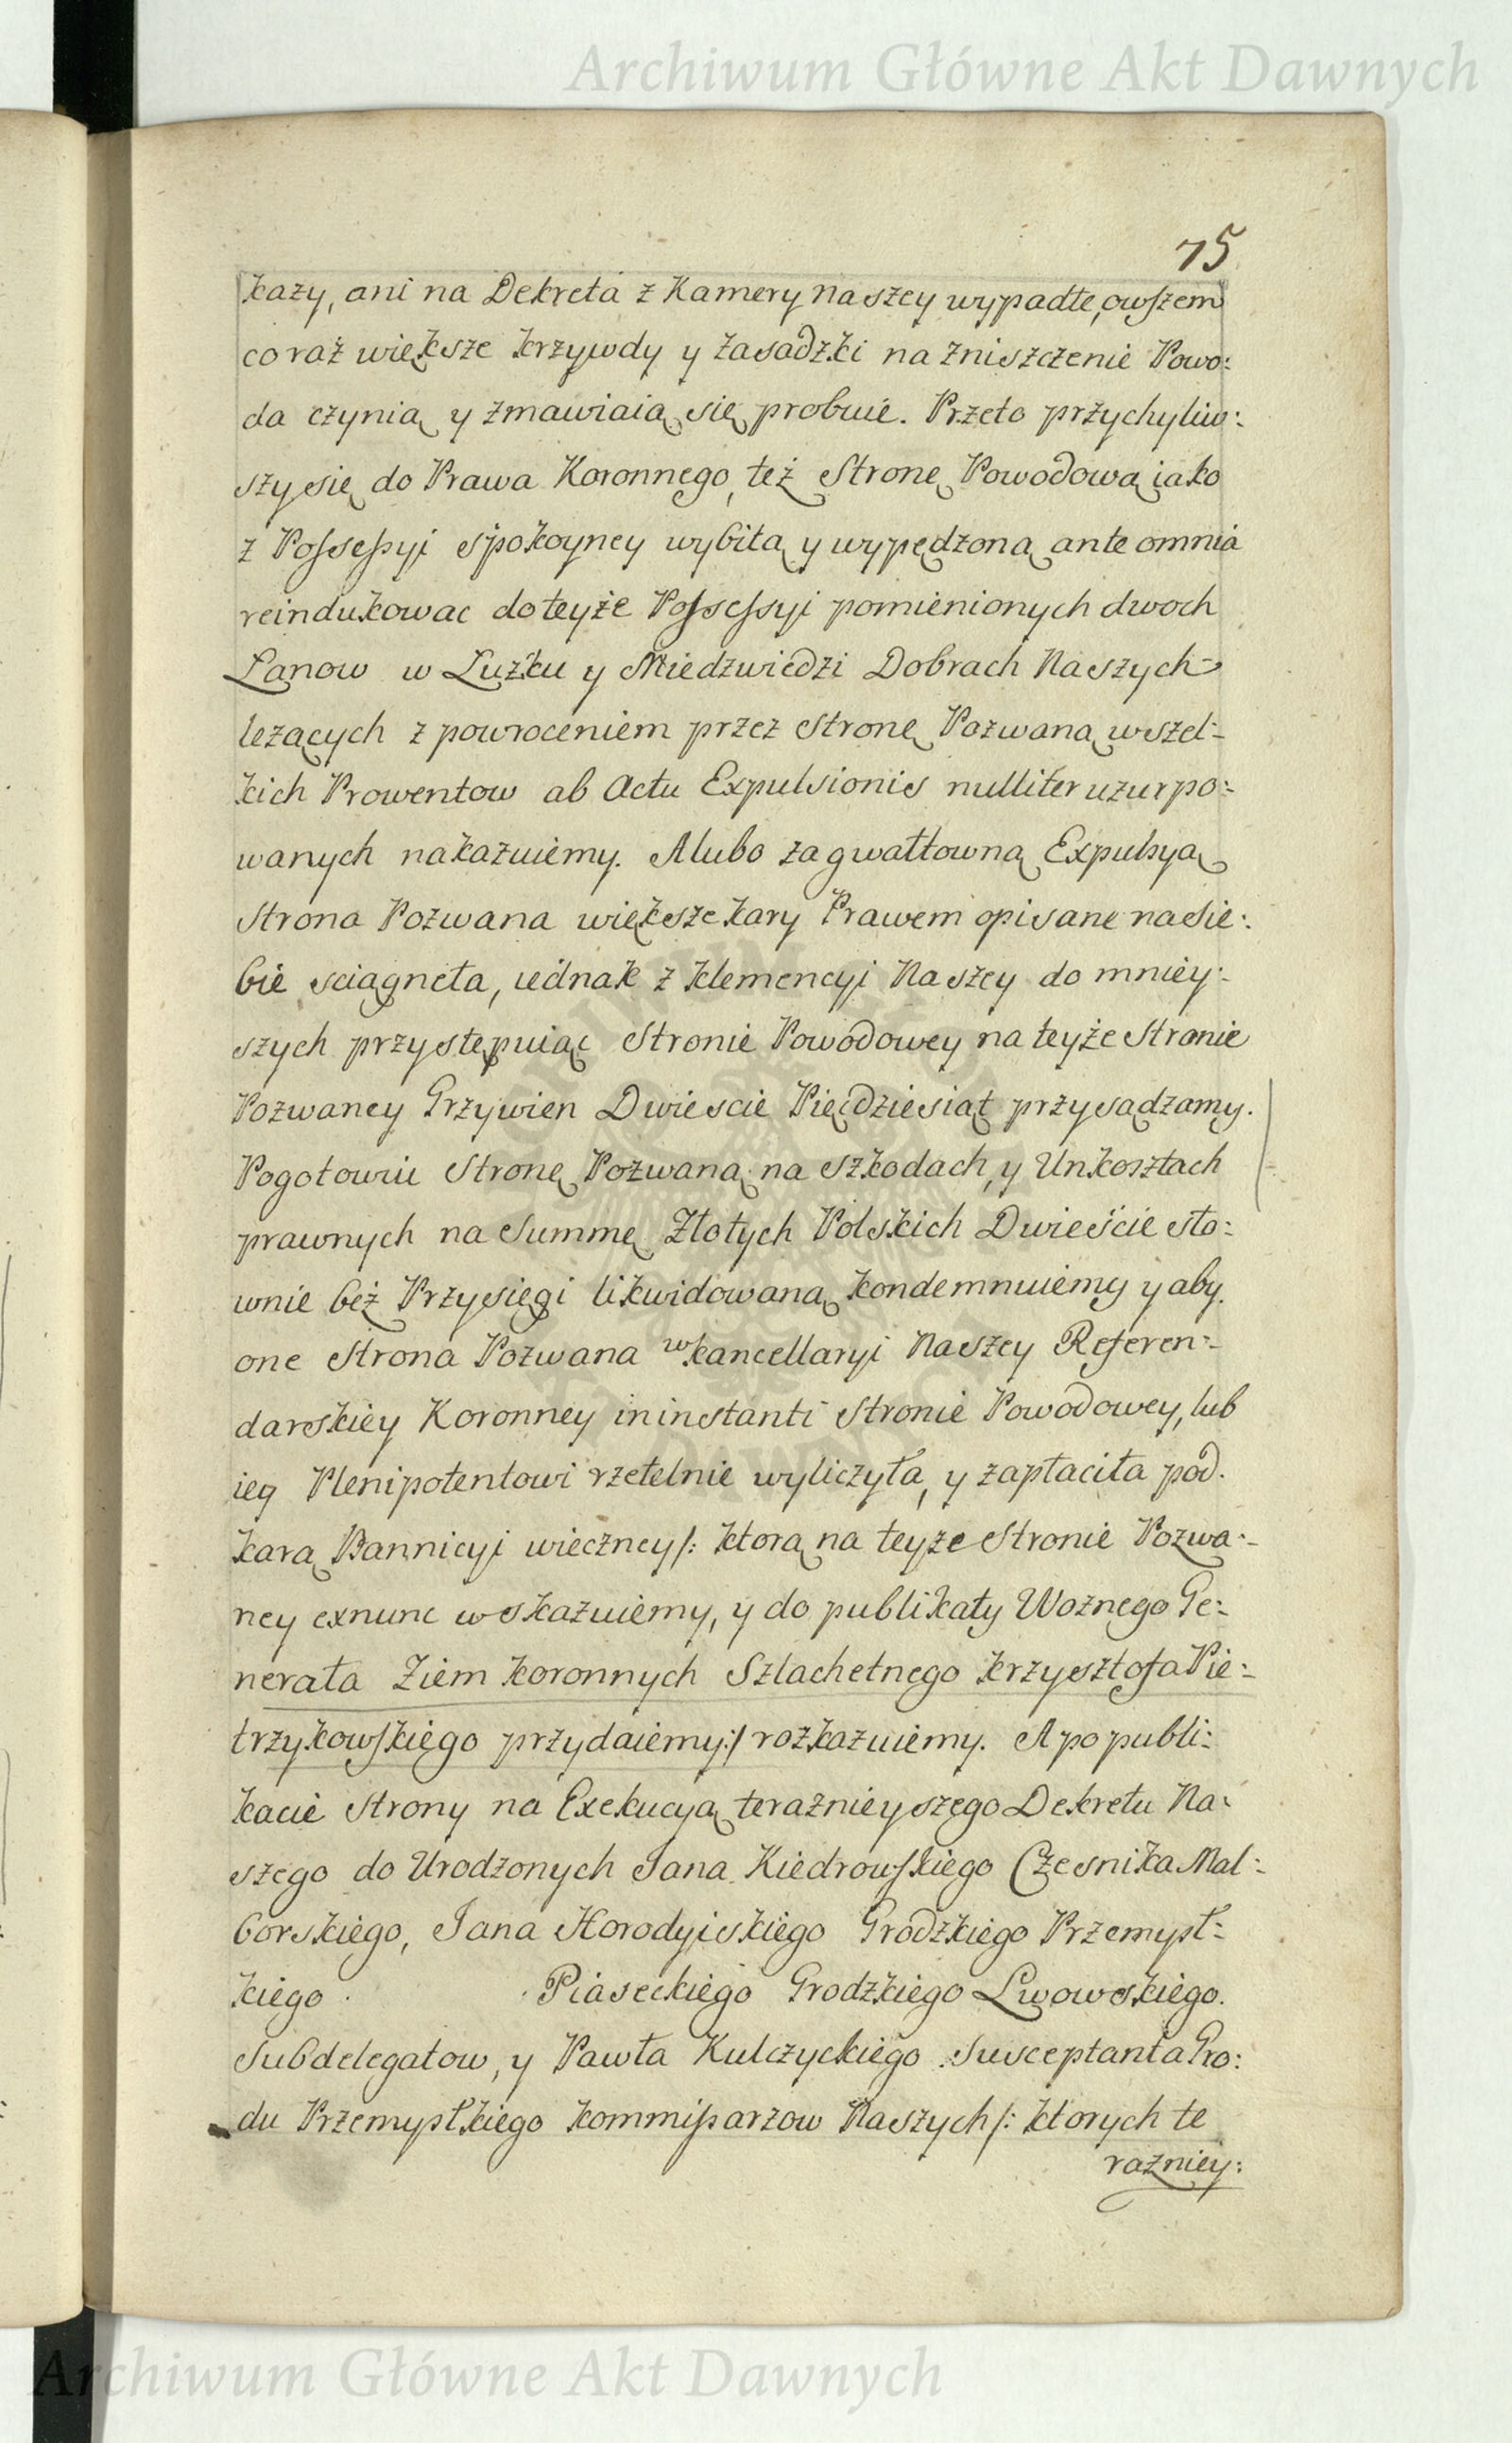 Archiwum Główne Akt Dawnych
75
kazy, ani na Dekreta z Kamery naszey wypadłe, owszem
co raz większe krzywdy y zasadzki na zniszczenie Powo:
da czynią y zmawiaią się probuie. Przeto przychyliw:
szy się do Prawa Koronnego, też Stronę Powodową iako
z Possessyi spokoyney wybitą y wypędzoną ante omnia
reindukowac do teyże Possessyi pomienionych dwoch
Łanow w Łużku y Miedzwiedzi Dobrach Naszych
leżących z powroceniem przez Stronę Pozwaną wszel:
kich Prowentow ab Actu Expulsionis nulliter uzurpo:
wanych nakazuiemy. A lubo za gwałtowną Expulsyą
Strona Pozwana większe kary Prawem opisane na sie:
bie sciągneła, iednak z klemencyi Naszey do mniey:
szych przystępuiąc Stronie Powodowey na teyże Stronie
Pozwaney Grzywien Dwiescie Pięcdziesiąt przysądzamy.
Pogotowiu Stronę Pozwaną na szkodach, y Unkosztach
prawnych na Summę Złotych Polskich Dwieście sło:
wnie beż Przysięgi likwidowaną kondemnuiemy y aby
one Strona Pozwana w kancellaryi Naszey Referen:
darskiey Koronney in instanti Stronie Powodowey, lub
iey Plenipotentowi rzetelnie wyliczyła, y zapłaciła pod
karą Bannicyi wieczney /: ktorą na teyże Stronie Pozwa:
ney exnunc wskazuiemy, y do publikaty Woznego Ge:
nerała Ziem koronnych Szlachetnego krzysztofa Pie:
trzykowskiego przydaiemy :/ rozkazuiemy. A po publi:
kacie Strony na Exekucyą teraznieyszego Dekretu Na:
szego do Urodzonych Jana Kiedrowskiego Czesnika Mal:
borskiego, Jana Horodyiskiego Grodzkiego Przemysł:
kiego Piaseckiego Grodzkiego Lwowskiego.
Subdelegatow, y Pawła Kulczyckiego Susceptanta Gro:
du Przemysłkiego kommissarzow Naszych /: ktorych te
razniey:
Archiwum Główne Akt Dawnych